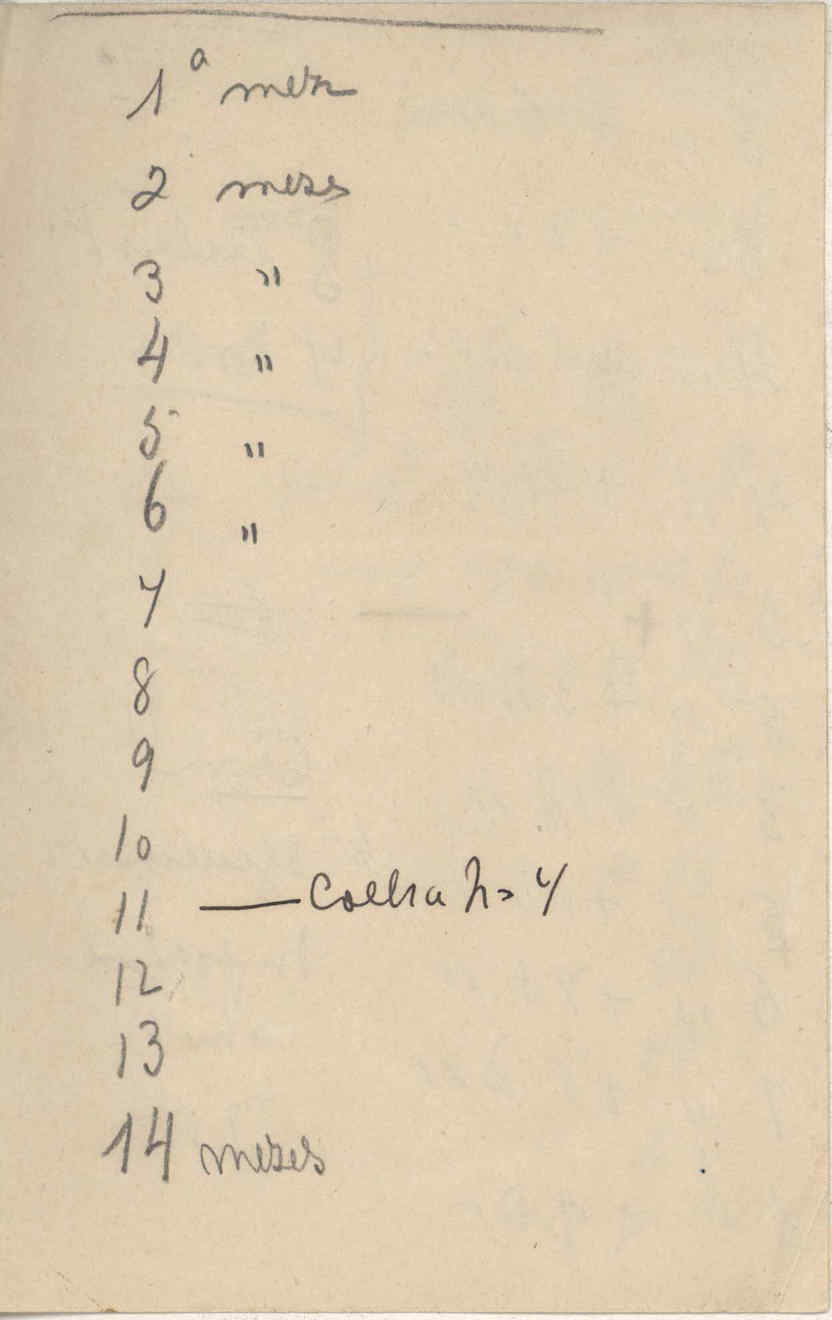 1ª mez
2 mezes
3 "
4 "
5 "
6 "
7
8
9
10
11 — Coelha
12
13
14 mezes